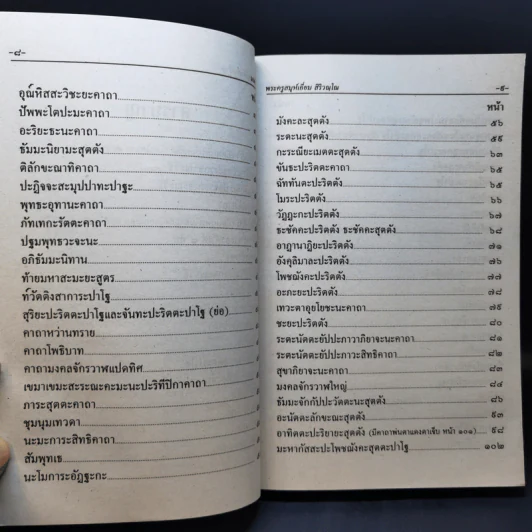 -๘-
อุณ์หิสสะวิชะยะคาถา
ปัพพะโตปะมะคาถา
อะริยะธะนะคาถา
ธัมมะนิยามะสุตตัง
ติลักขะณาทิคาถา
ปะฏิจจะสะมุปปาทะปาฐะ
พุทธะอุทานะคาถา
ภัทเทกะรัตตะคาถา
ปฐมพุทธวะจะนะ
อภิธัมมะนิทาน
ท้ายมหาสะมะยะสูตร
ท์วัตติงสาการะปาโฐ
สุริยะปะริตตะปาโฐและจันทะปะริตตะปาโฐ (ย่อ)
คาถาหว่านทราย
คาถาโพธิบาท
คาถามงคลจักรวาฬแปดทิศ
เขมาเขมะสะระณะคะมะนะปะริทีปิกาคาถา
ภาระสุตตะคาถา
ชุมนุมเทวดา
นะมะการะสิทธิคาถา
สัมพุทเธ
นะโมการะอัฏฐะกะ
พระครูสมุห์เอี่ยม สิริวณฺโณ -๙-
หน้า
มังคะละสุตตัง ๕๖
ระตะนะสุตตัง ๕๙
กะระณียะเมตตะสุตตัง ๖๓
ขันธะปะริตตะคาถา ๖๕
ฉัททันตะปะริตตัง ๖๕
โมระปะริตตัง ๖๖
วัฏฏะกะปะริตตัง ๖๗
ธะชัคคะปะริตตัง ธะชัคคะสุตตัง ๖๘
อาฏานาฏิยะปะริตตัง ๗๑
อังคุลิมาละปะริตตัง ๗๖
โพชฌังคะปะริตตัง ๗๗
อะภะยะปะริตตัง ๗๘
เทวะตาอุยโยชะนะคาถา ๗๙
ชะยะปะริตตัง ๘๐
ระตะนัตตะยัปปะภาวาภิยาจะนะคาถา ๘๑
ระตะนัตตะยัปปะภาวะสิทธิคาถา ๘๒
สุขาภิยาจะนะคาถา ๘๓
มงคลจักรวาฬใหญ่ ๘๔
ธัมมะจักกัปปะวัตตะนะสุตตัง ๘๖
อะนัตตะลักขะณะสุตตัง ๙๓
อาทิตตะปะริยายะสุตตัง (มีคาถาพ่นตาแดงตาเจ็บ หน้า ๑๐๑) ๙๘
มะหากัสสะปะโพชฌังคะสุตตะปาโฐ ๑๐๒